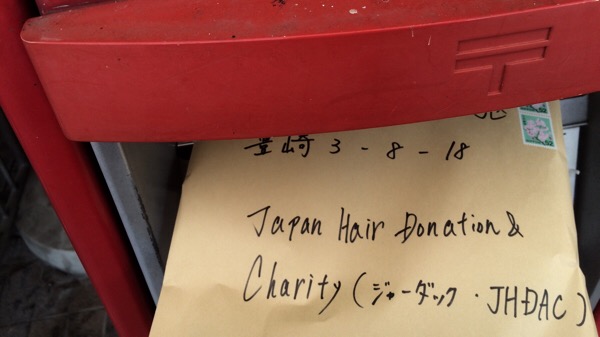 豊崎 3-8-18
Japan Hair Donation &
Charity (ジャーダック・JHDAC)